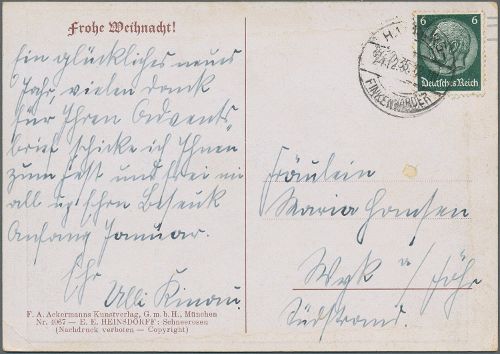 Frohe Weihnacht!
Ein glückliches neues
Jahr, vielen Dank
für Ihren Advents
brief schicke ich Ihnen
zum Fest und
Ihren Besuch
Anfang Januar.
Ihr
Kinau.
F. A. Ackermanns Kunstverlag, G. m. b. H., München
Nr. 1067 — E. E. HEINSDORFF: Schneerosen
(Nachdruck verboten — Copyright)
6 6
Deutsches Reich
24.12.35
FINKENWÄRDER
Fräulein
Maria Hansen
Wyk a/Föhr
Südstrand.